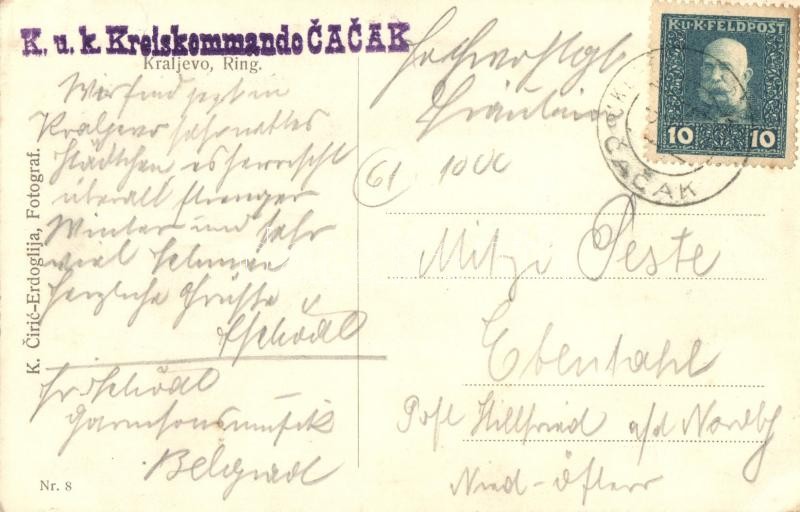 K. u. k. Kreiskommando ČAČAK
Kraljevo, Ring.
Wir sind jetzt in
Kraljevo sehr nettes
Städtchen es herrscht
überall strenger
Winter und sehr
viel Schnee
Herzliche Grüße
Schödl
Schödl
Garnisonsmusik
Belgrad
K. Čirić-Erdoglija, Fotograf.
Nr. 8
Fräulein
61 1000
Mitzi Peste
Ebenthal
Post Hillfried a/d Nordb
Nied-Österr
K.u.K.FELDPOST
10 10
ČAČAK